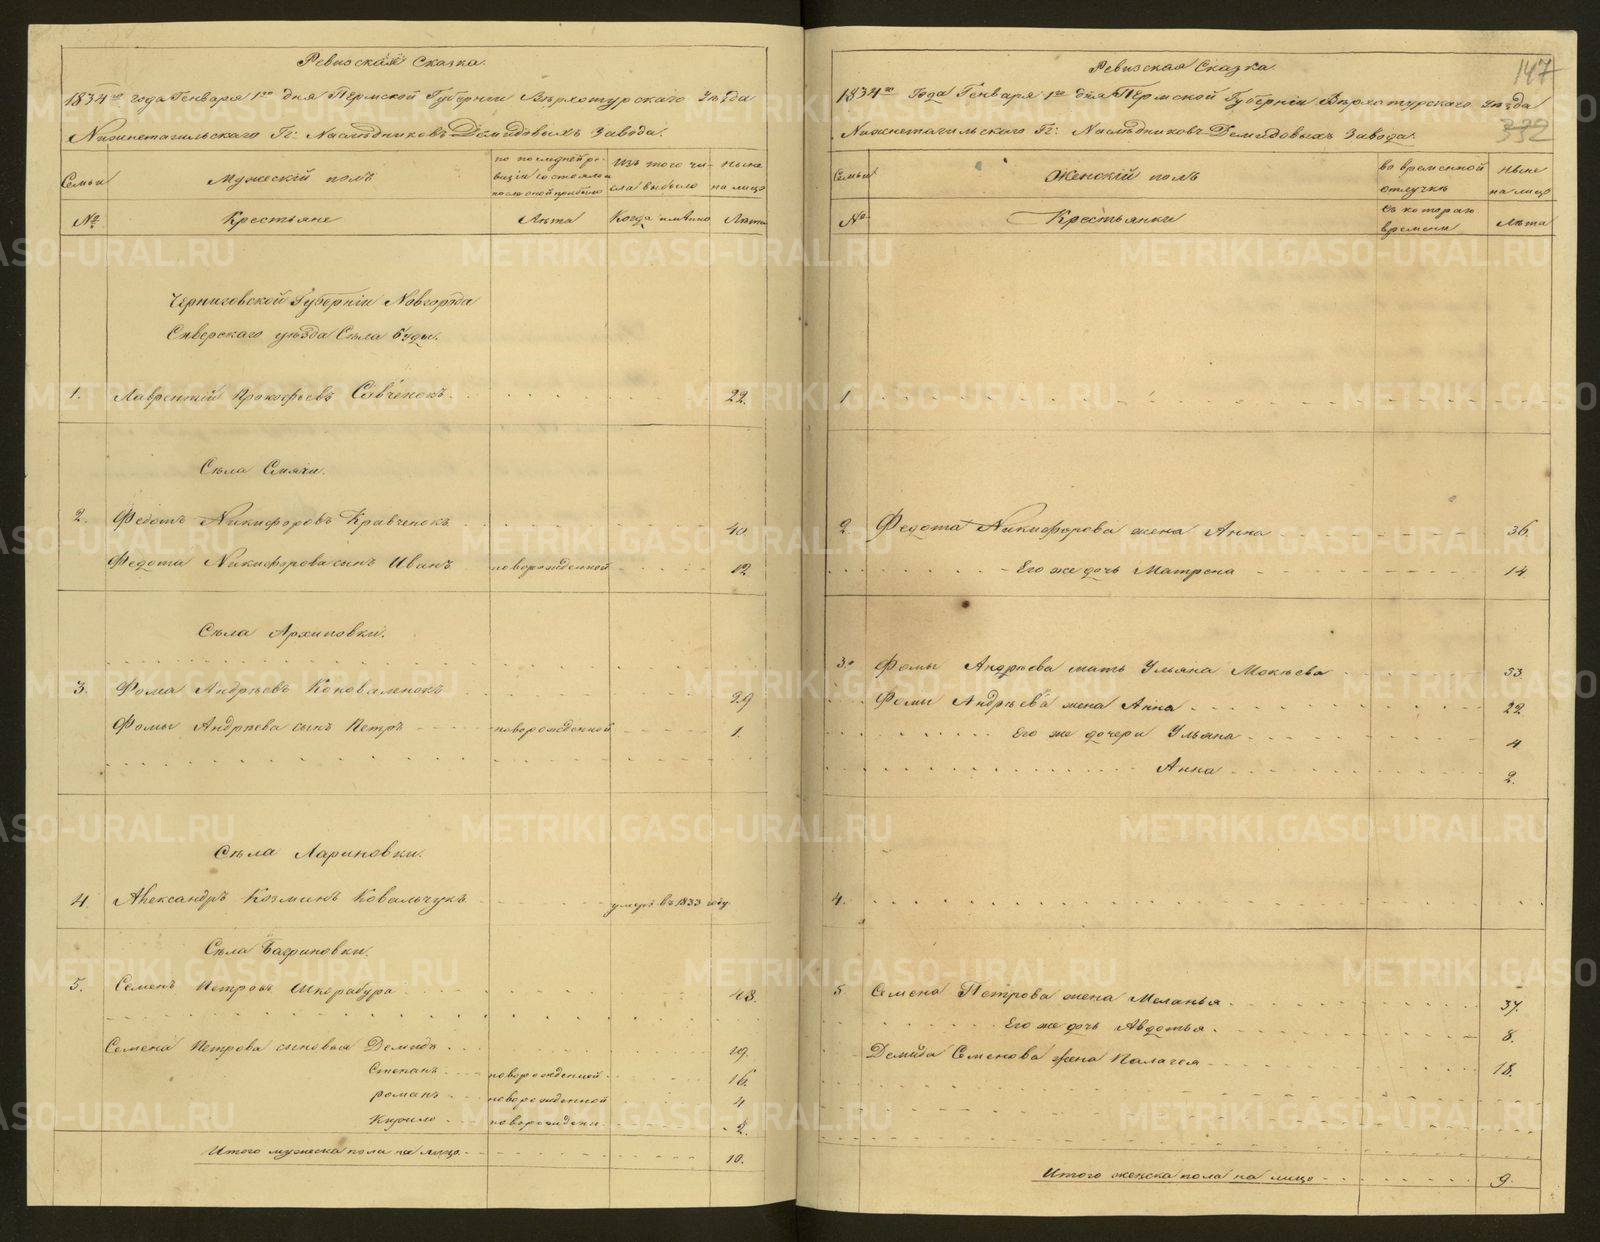 Ревизская Сказка.
1834го года Генваря 1го дня Пермской Губернiи Верхотурскаго Уѣзда
Нижнетагильскаго Гг: Наслѣдниковъ Демидовыхъ Завода.
Семьи
Мужескiй полъ
по последней ре-
визiи состояло и
после оной прибыло
Изъ того чи-
сла выбыло
Ныне
на лицо
№
Крестьяне
Лѣта
Когда именно
Лѣта
Черниговской Губернiи Новгорода
Сиверскаго уѣзда Села Буды.
1. Лаврентiй Прокофьевъ Савченокъ 22.
Села Смячи.
2. Федотъ Никифоровъ Кравченокъ 40.
Федота Никифорова сынъ Иванъ новорожденной 12
Села Архиповки.
3. Фома Андрѣевъ Коноваленокъ 29
Фомы Андрѣева сынъ Петръ новорожденной 1.
Села Лариновки.
4. Александръ Козминъ Ковальчукъ умеръ въ 1833 году
Села Багриновки.
5. Семенъ Петровъ Шкерабура 48.
Семена Петрова сыновья Демидъ 19.
Степанъ новорожденной 16.
Романъ новорожденной 4
Кирило новорожденн. 2.
Итого мужеска пола на лицо 10.
147
332
Ревизская Сказка.
1834го Года Генваря 1го дня Пермской Губернiи Верхотурскаго Уѣзда
Нижнетагильскаго Гг: Наслѣдниковъ Демидовыхъ Завода.
Семьи
Женскiй полъ
во временной
отлучкѣ
Ныне
на лицо
№
Крестьянки
Съ котораго
времени
Лѣта
1
2. Федота Никифорова жена Анна 36.
Его же дочь Матрена 14
3. Фомы Андрѣева мать Ульяна Мокѣева 53.
Фомы Андрѣева жена Анна 22
Его же дочери Ульяна 4
Анна 2.
4.
5 Семена Петрова жена Меланья 37.
Его же дочь Авдотья 8.
Демида Семенова жена Палагея 18.
Итого женска пола на лицо 9.
METRIKI.GASO-URAL.RU